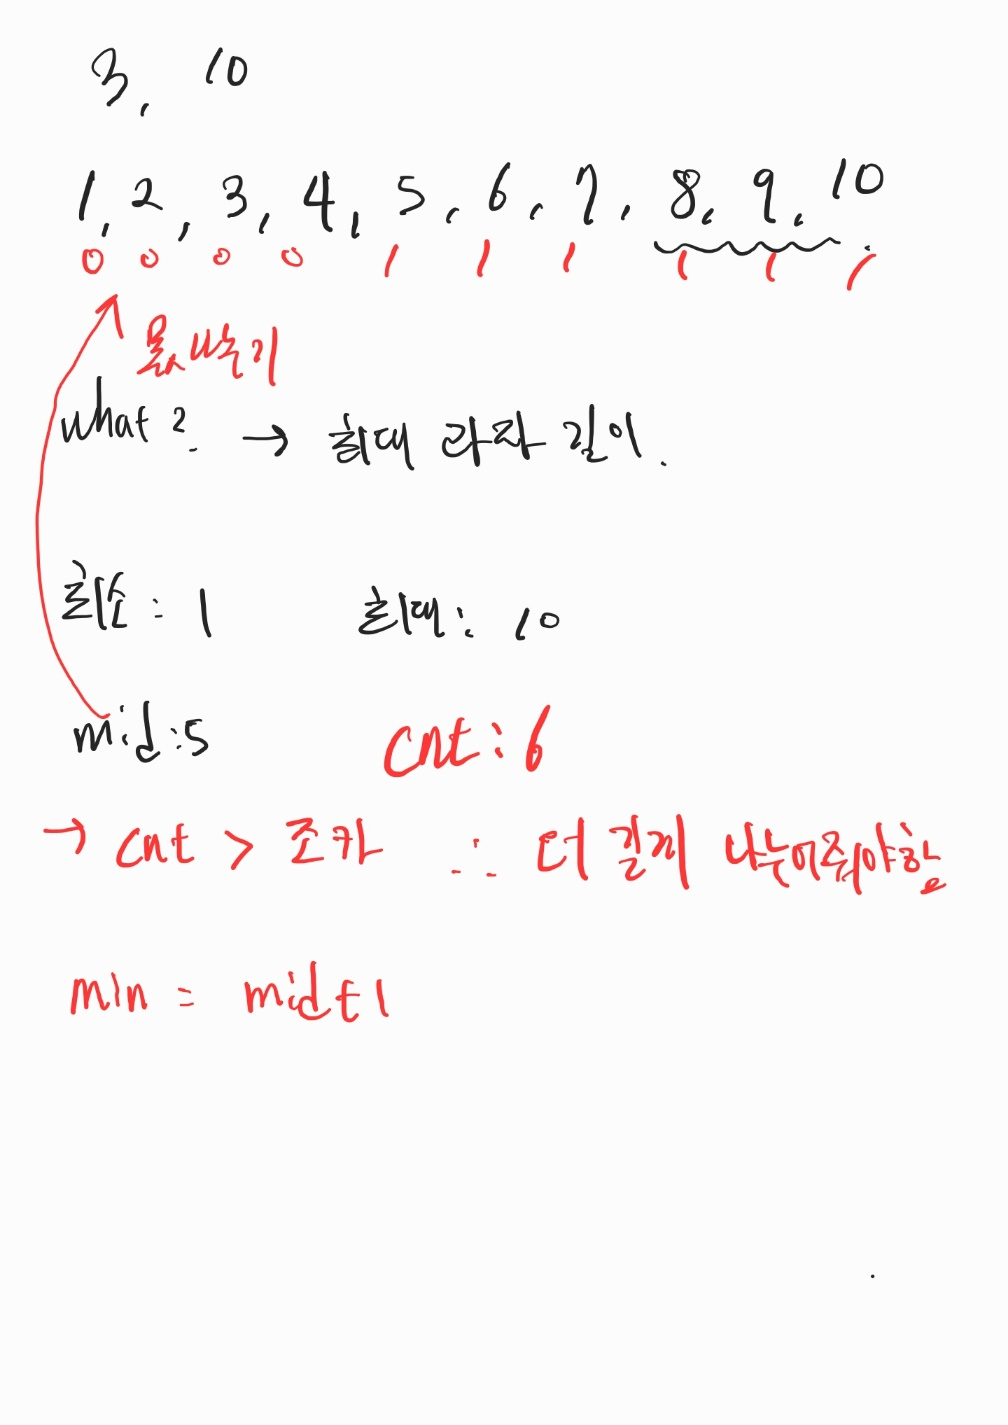 3, 10
1, 2, 3, 4, 5, 6, 7, 8, 9, 10
0 0 0 0 1 1 1 1 1 1
몫 나누기
what? → 최대 과자 길이.
최소 : 1 최대 : 10
mid : 5 cnt : 6
→ cnt > 조카 ∴ 더 길게 나누어줘야함
min = mid + 1